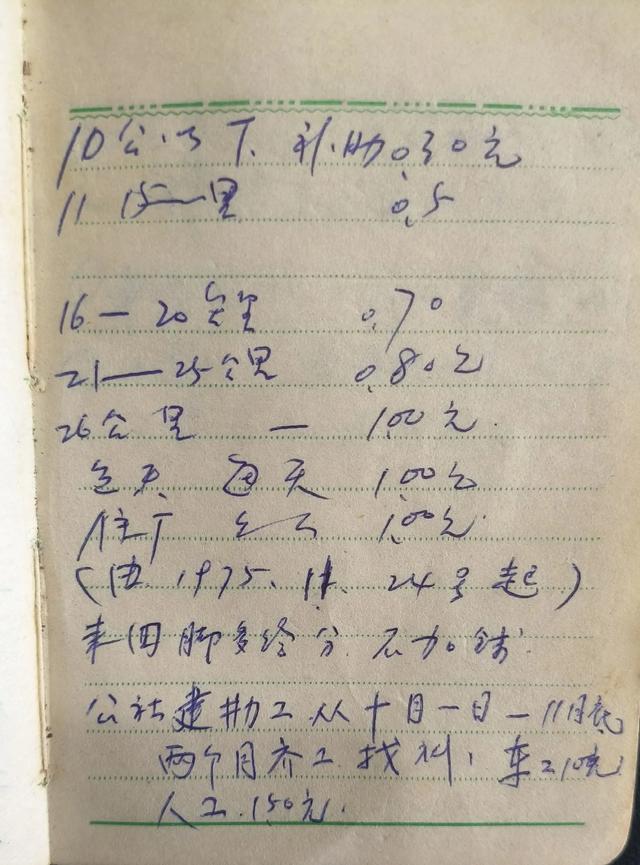 10公以下 补助0.30元
11 15—里 0.5
16—20公里 0.70
21—25公里 0.80元
26公里 — 1.00元.
每天 1.00元
住下 1.00元.
(由1975.11.24号起)
来回脚多给分 不加钱.
公社建 工从十月一日—11月底
两个月齐工找料, 车210元
人工.150元.